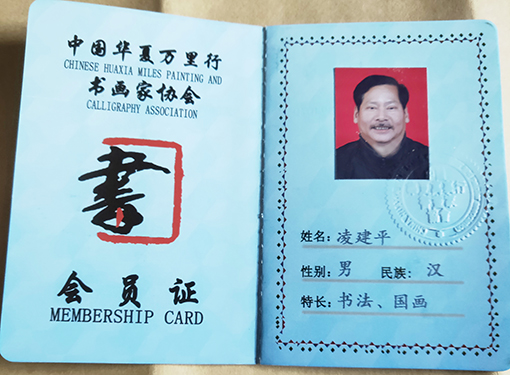 中国华夏万里行
CHINESE HUAXIA MILES PAINTING AND
书画家协会
CALLIGRAPHY ASSOCIATION
書
会员证
MEMBERSHIP CARD
姓名：凌建平
性别：男 民族：汉
特长：书法、国画